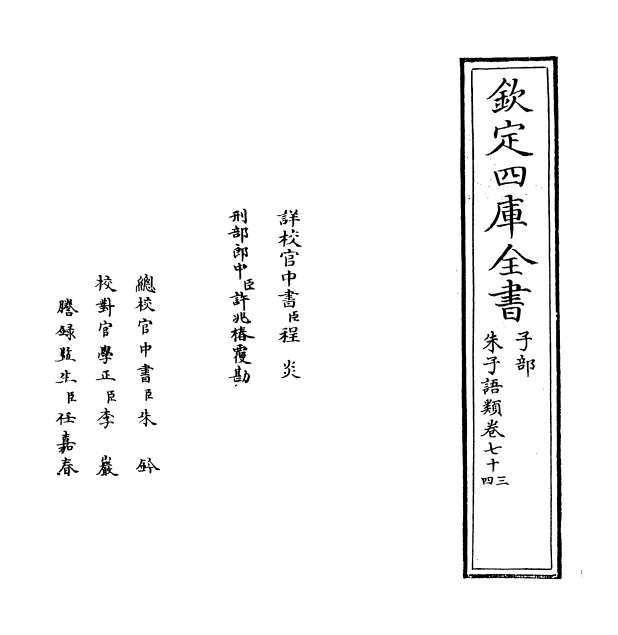 欽定四庫全書
子部
朱子語類卷七十三四
詳校官中書臣程炎
刑部郎中臣許兆椿覆勘
總校官中書臣朱鈐
校對官學正臣李巖
謄録監生臣任嘉春